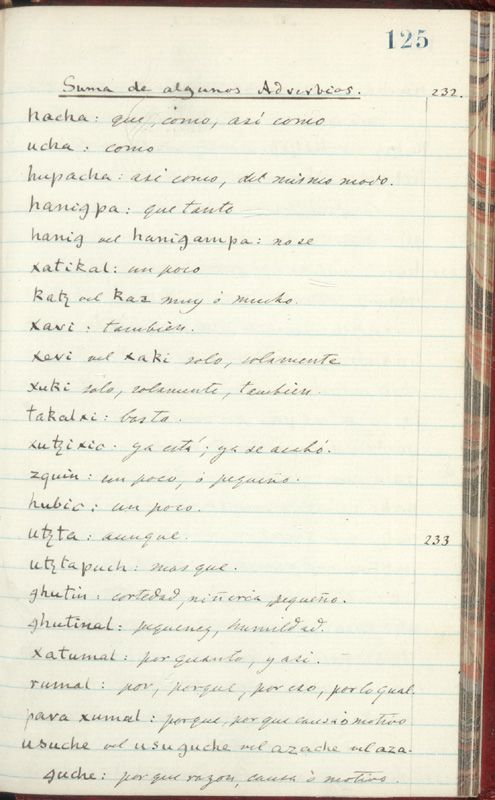 125
Suma de algunos Adverbios. 232.
hacha: que, como, así como
ucha: como
hupacha: así como, del mismo modo.
hanigpa: que tanto
hanig vel hanigampa: no se
xatikal: un poco
katz vel kaz muy ó mucho.
xavi: tambien.
xevi vel xaki solo, solamente
xuki solo, solamente, tambien.
takalxi: basta.
xutzixic. ya está; ya se acabó.
zquin: un poco, ó pequeño.
hubic: un poco.
utzta: aunque. 233
utztapuch: mas que.
ghutin: cortedad, niñeria, pequeño.
ghutinal: pequenez, humildad.
xatumal: por quanto, y asi.
rumal: por, porque, por eso, por lo qual.
para xumal: porque, por que causa ó motivo
usuche vel usuguche vel azache vel aza-
guche: por que razon, causa ó motivo.